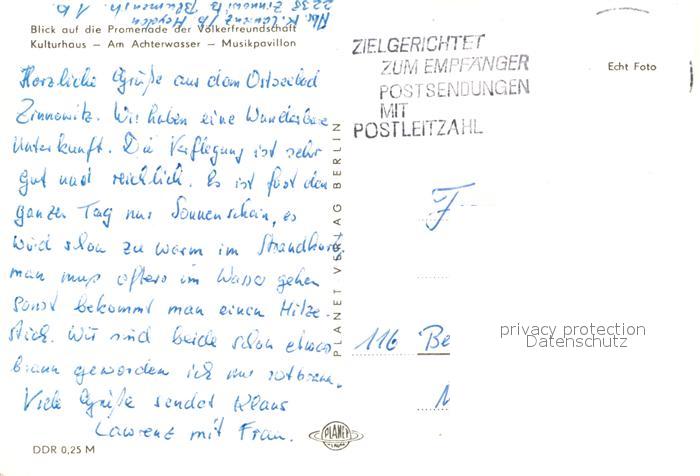 2238 Zinnowitz Blumenstr. 1b
Abs. K. Lawrenz b/ Heyden
Blick auf die Promenade der Völkerfreundschaft
Kulturhaus — Am Achterwasser — Musikpavillon
Herzliche Grüße aus dem Ostseebad
Zinnowitz. Wir haben eine Wunderbare
Unterkunft. Die Verflegung ist sehr
gut und reichlich. Es ist fast den
ganzen Tag nur Sonnenschein, es
wird schon zu warm im Strandkorb,
man muß öfters im Wasser gehen
sonst bekommt man einen Hitze-
stich. Wir sind beide schon etwas
braun geworden ich nur rotbraun.
Viele Grüße sendet Klaus
Lawrenz mit Frau.
DDR 0,25 M
PLANET VERLAG BERLIN
PLANET
ZIELGERICHTET
ZUM EMPFÄNGER
POSTSENDUNGEN
MIT
POSTLEITZAHL
Echt Foto
F
116 Be
privacy protection
Datenschutz